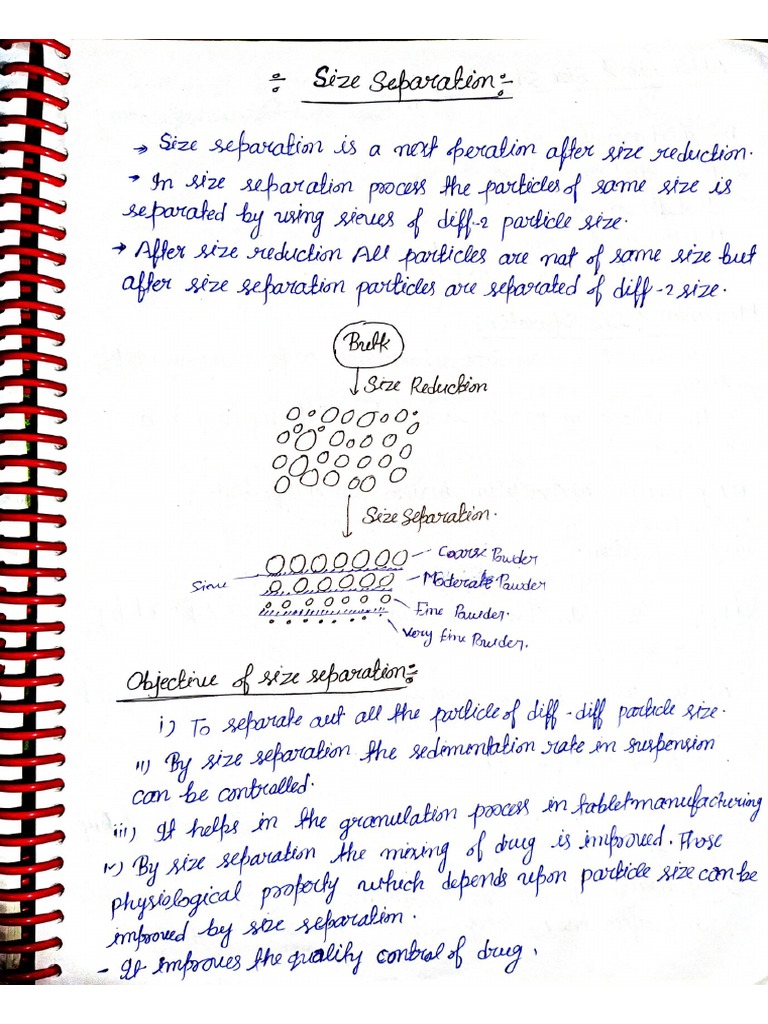 ÷ Size Separation :-
→ Size separation is a next operation after size reduction.
→ In size separation process the particles of same size is
separated by using sieves of diff-2 particle size.
→ After size reduction All particles are not of same size but
after size separation particles are separated of diff-2 size.
Bulk
Size Reduction
Size Separation.
Coarse Powder
Sieve
Moderate Powder
Fine Powder.
Very fine Powder.
Objective of size separation :-
i) To separate out all the particle of diff-diff particle size.
ii) By size separation the sedimentation rate in suspension
can be controlled.
iii) It helps in the granulation process in tablet manufacturing
iv) By size separation the mixing of drug is improved. Those
physiological property which depends upon particle size can be
improved by size separation.
- It improves the quality control of drug.